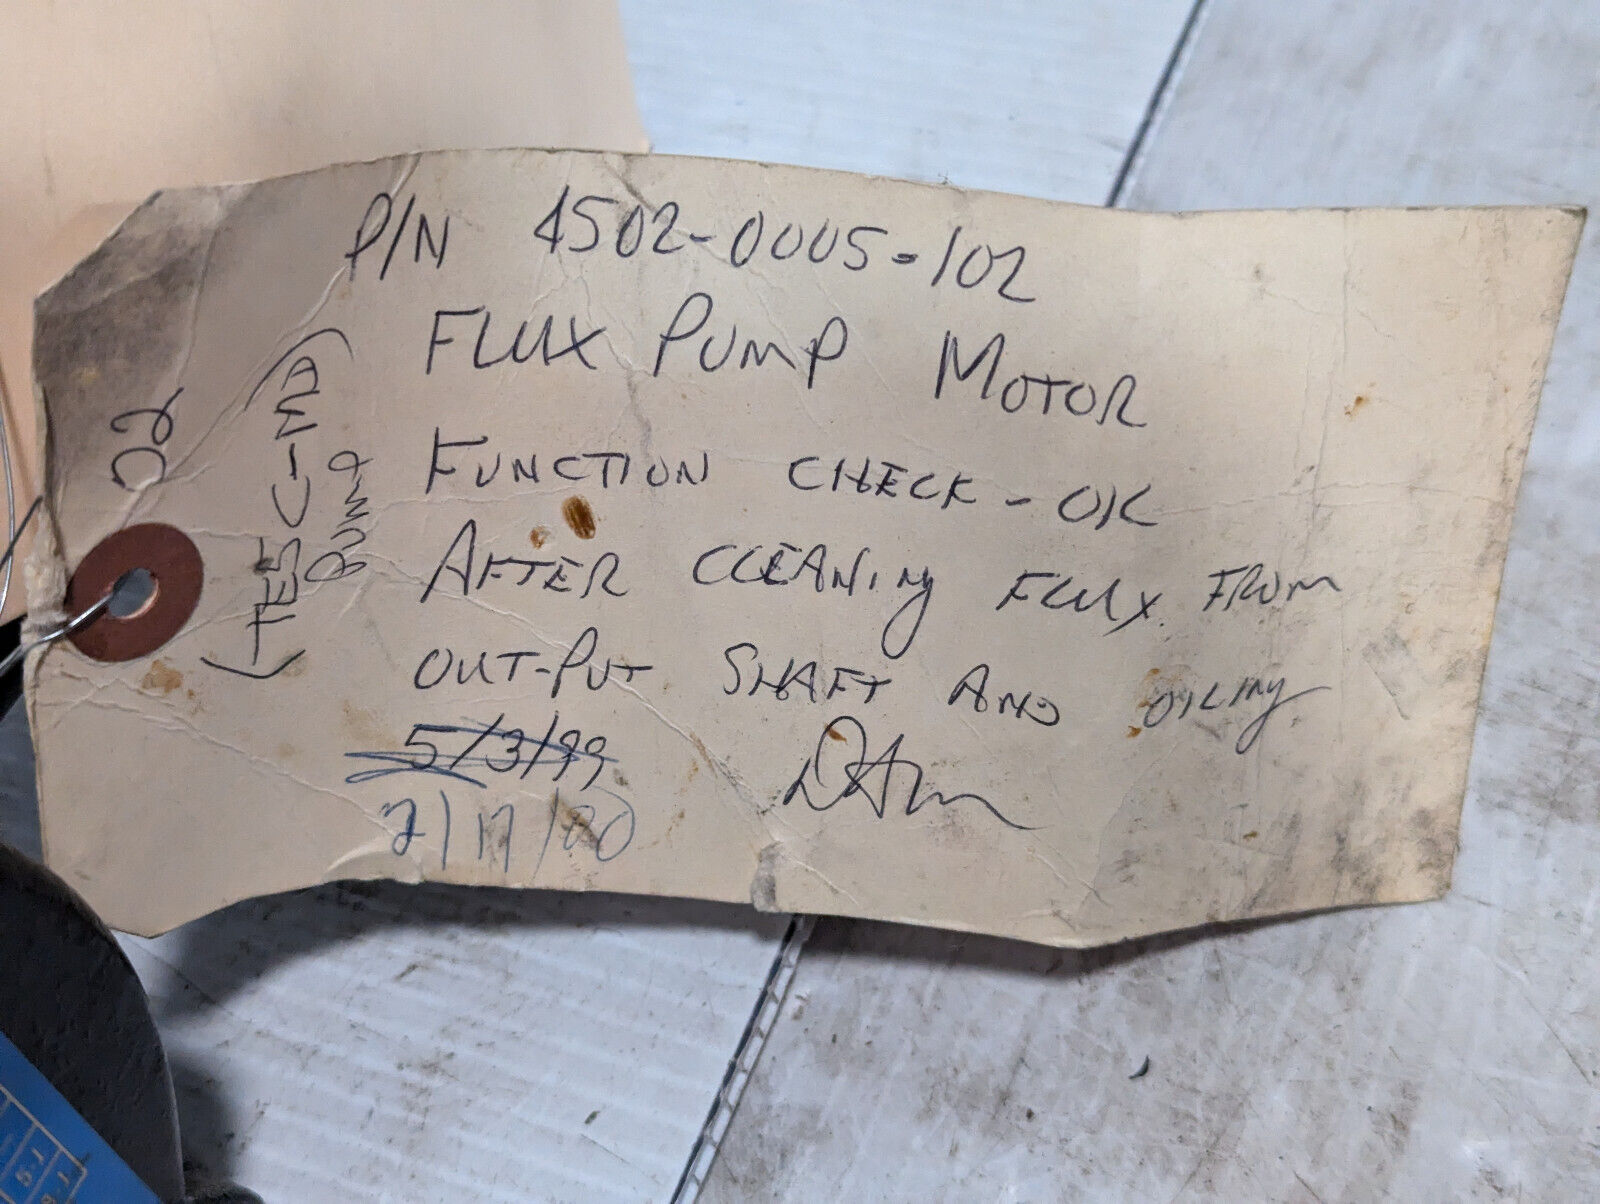 P/N 4502-0005-102
FLUX PUMP MOTOR
FUNCTION CHECK - OK
AFTER CLEANING FLUX FROM
OUT-PUT SHAFT AND OILING
5/3/99
2/17/00
02
(TESC-MD)
PUMP